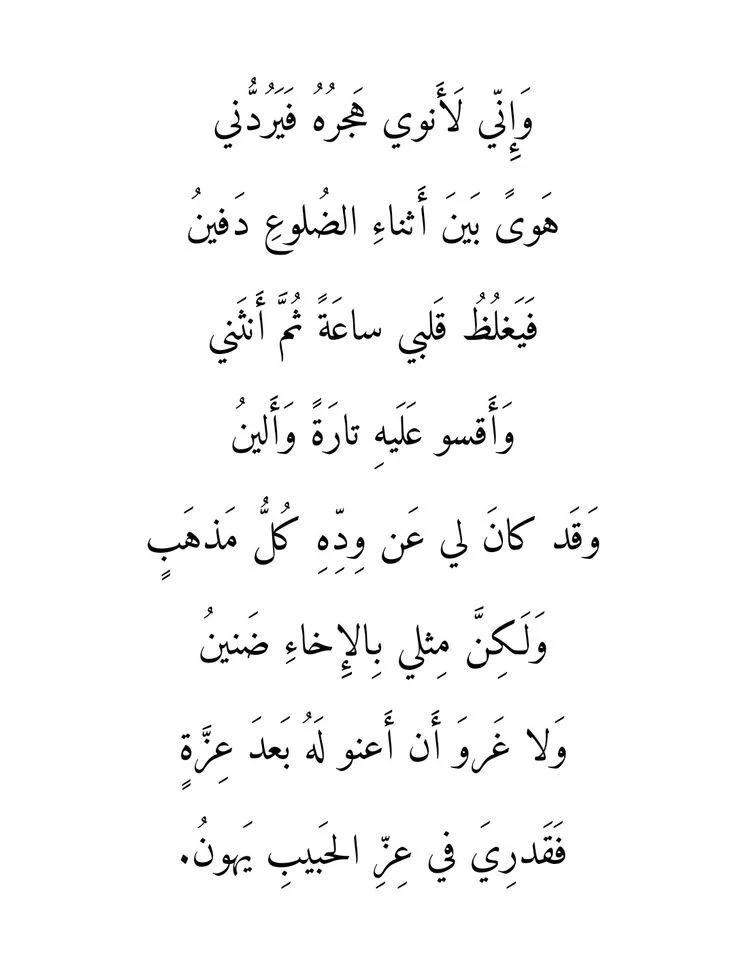 وَإِنّي لَأَنوي هَجرُهُ فَيَرُدُّني
هَوىً بَينَ أَثناءِ الضُلوعِ دَفينُ
فَيَغلُظُ قَلبي ساعَةً ثُمَّ أَنثَني
وَأَقسو عَلَيهِ تارَةً وَأَلينُ
وَقَد كانَ لي عَن وِدِّهِ كُلُّ مَذهَبٍ
وَلَكِنَّ مِثلي بِالإِخاءِ ضَنينُ
وَلا غَروَ أَن أَعنو لَهُ بَعدَ عِزَّةٍ
فَقَدرِيَ في عِزِّ الحَبيبِ يَهونُ.